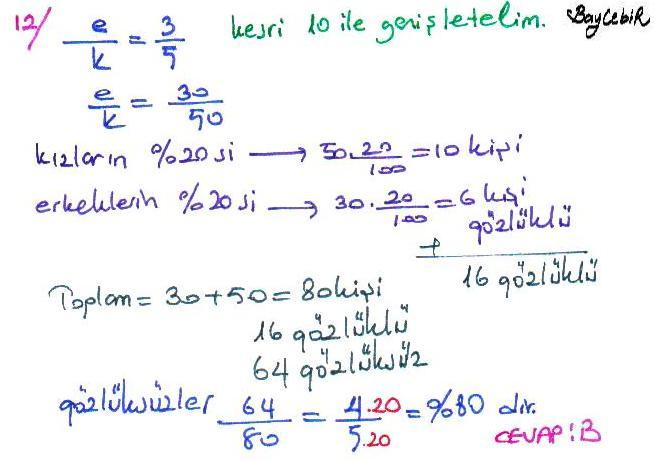 12/ e/k = 3/5 kesri 10 ile genişletelim. BayCebiR
e/k = 30/50
kızların %20 si → 50.20/100 = 10 kişi
erkeklerin %20 si → 30.20/100 = 6 kişi
gözlüklü
+
16 gözlüklü
Toplam = 30+50 = 80 kişi
16 gözlüklü
64 gözlüksüz
gözlüksüzler 64/80 = 4.20/5.20 = %80 dir.
CEVAP: B